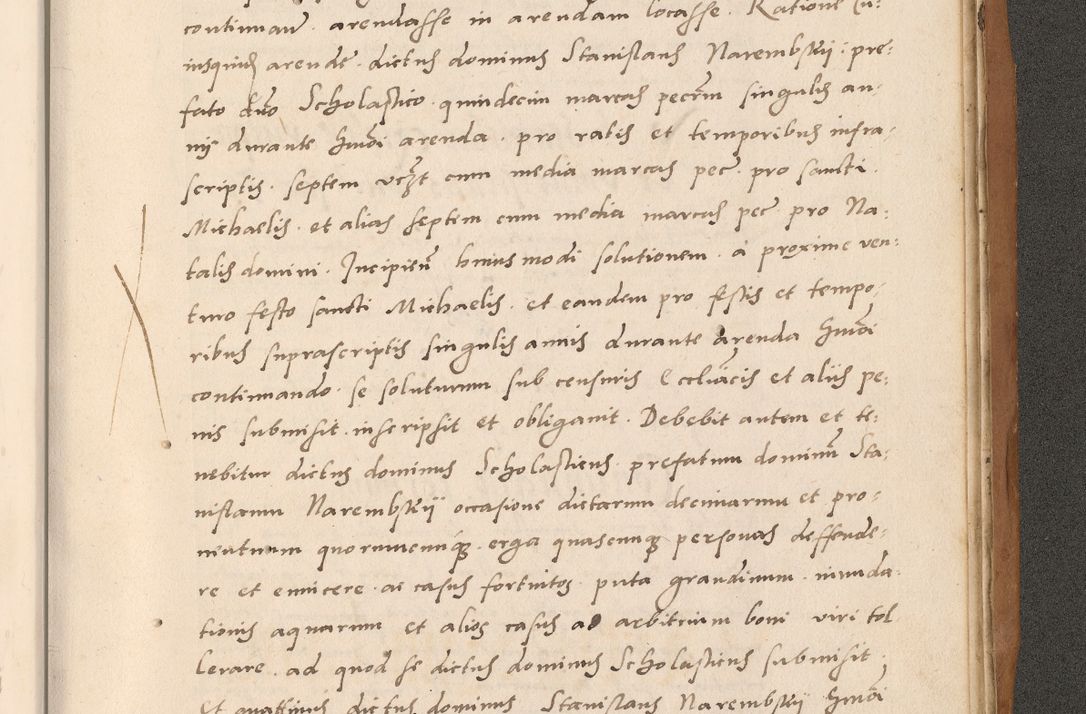 continuam . arendasse in arendam locasse . Ratione cu:
iusquid arende . dictus dominus Stanislaus Narembskij : pre:
fato dno Scholastico . quindecim marcas pecrm singulis an:
nis durante hmoi arenda . pro rabis et temporibus infra:
scriptis . septem vczt cum media marcas pec . pro sancti .
Michaelis . et alias septem cum media marcas pec . pro Na:
talis domini . Incipien huiusmodi solutionem . a proxime ven:
turo festo sancti Michaelis . et eandem pro festis et tempo:
ribus suprascriptis singulis annis durante arenda hmoi
continuando . se soluturum sub censuris Eccliacis et aliis pe:
nis submisit . inscripsit et obligavit . Debebit autem et te:
nebitur dictus dominus Scholasticus . prefatum dominum Sta:
nislaum Narembskij occasione dictarum decimarum et pro:
ventuum quorumcumque . erga quascumque personas deffende:
re et evincere . ac casus fortuitos . puta grandinum . inunda:
tionis aquarum et alios casus ad arbitrium boni viri tol
lerare . ad quod se dictus dominus Scholasticus submisit .
Et quattinus dictus dominus Stanislaus Narembskij hmoi